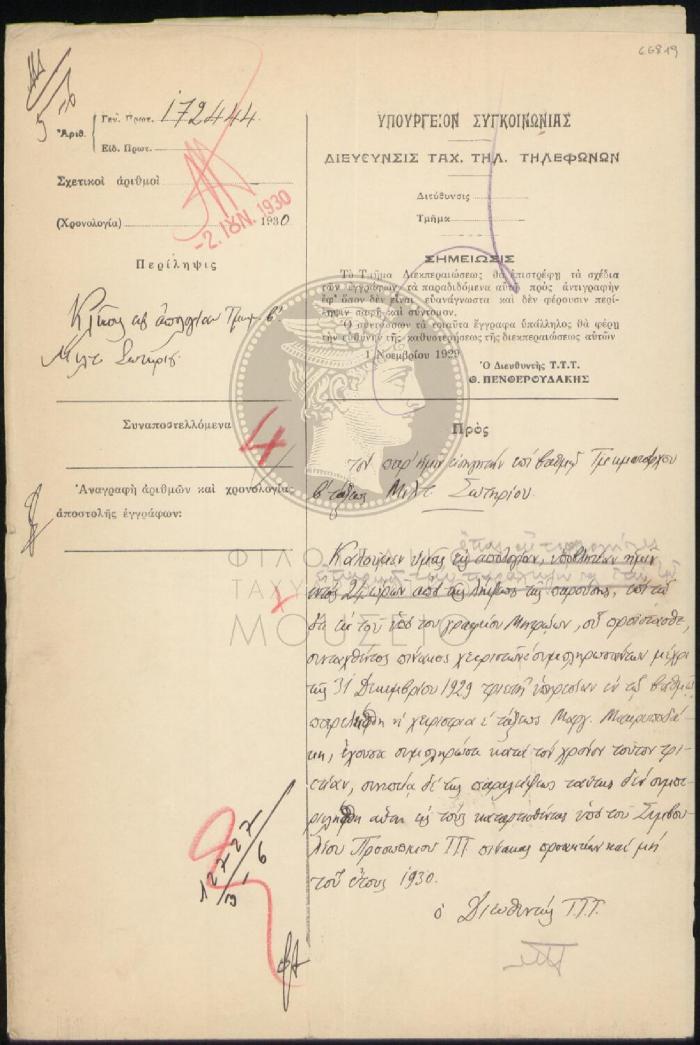 66819
5-6
Ἀριθ. Γεν. Πρωτ. 172444
Εἰδ. Πρωτ.
Σχετικοὶ ἀριθμοὶ
(Χρονολογία) 1930
-2. ΙΟΥΝ. 1930
Περίληψις
Κλῆσις εἰς ἀπολογίαν Τμημ. β'
Μιλτ. Σωτηρίου
Συναποστελλόμενα
4
Ἀναγραφὴ ἀριθμῶν καὶ χρονολογίας
ἀποστολῆς ἐγγράφων:
12727
3-6
ΥΠΟΥΡΓΕΙΟΝ ΣΥΓΚΟΙΝΩΝΙΑΣ
ΔΙΕΥΘΥΝΣΙΣ ΤΑΧ. ΤΗΛ. ΤΗΛΕΦΩΝΩΝ
Διεύθυνσις
Τμῆμα
ΣΗΜΕΙΩΣΙΣ
Τὸ Τμῆμα Διεκπεραιώσεως θὰ ἐπιστρέφῃ τὰ σχέδια
τῶν ἐγγράφων τὰ παραδιδόμενα αὐτῷ πρὸς ἀντιγραφὴν
ἐφ' ὅσον δὲν εἶναι εὐανάγνωστα καὶ δὲν φέρουσιν περί-
ληψιν σαφῆ καὶ σύντομον.
Ὁ συντάσσων τὰ τοιαῦτα ἔγγραφα ὑπάλληλος θὰ φέρῃ
τὴν εὐθύνην τῆς καθυστερήσεως τῆς διεκπεραιώσεως αὐτῶν
1 Νοεμβρίου 1929
Ὁ Διευθυντὴς Τ.Τ.Τ.
Θ. ΠΕΝΘΕΡΟΥΔΑΚΗΣ
Πρὸς
τὸν παρ' ἡμῖν εἰσηγητὴν ἐπὶ βαθμῷ Τμηματάρχου
β' τάξεως Μιλτ. Σωτηρίου.
Καλοῦμεν ὑμᾶς εἰς ἀπολογίαν, ὑποβλητέαν ἡμῖν
ἐντὸς 24 ὡρῶν ἀπὸ τῆς λήψεως τῆς παρούσης, ἐπὶ τῷ
ὅτι ἐκ τοῦ ὑπὸ τοῦ γραφείου Μητρώων, οὗ προΐστασθε,
συνταχθέντος πίνακος χειριστῶν συμπληρωσάντων μέχρι
τῆς 31 Δεκεμβρίου 1929 τριετῆ ὑπηρεσίαν ἐν τῷ βαθμῷ
παρελήφθη ἡ χειρίστρια ε' τάξεως Μαργ.
ἔχουσα συμπληρώσῃ κατὰ τὸν χρόνον τοῦτον τρι-
ετίαν, συνεπείᾳ δὲ τῆς παραλείψεως ταύτης δὲν συμπε-
ριελήφθη αὕτη εἰς τοὺς καταρτισθέντας ὑπὸ τοῦ Συμβου-
λίου Προσωπικοῦ ΤΤΤ πίνακας προακτέων καὶ μή
τοῦ ἔτους 1930.
ὁ Διευθυντὴς Τ.Τ.Τ.
ΦΙΛΟΤΕΛΙΚΟ
ΜΟΥΣΕΙΟ